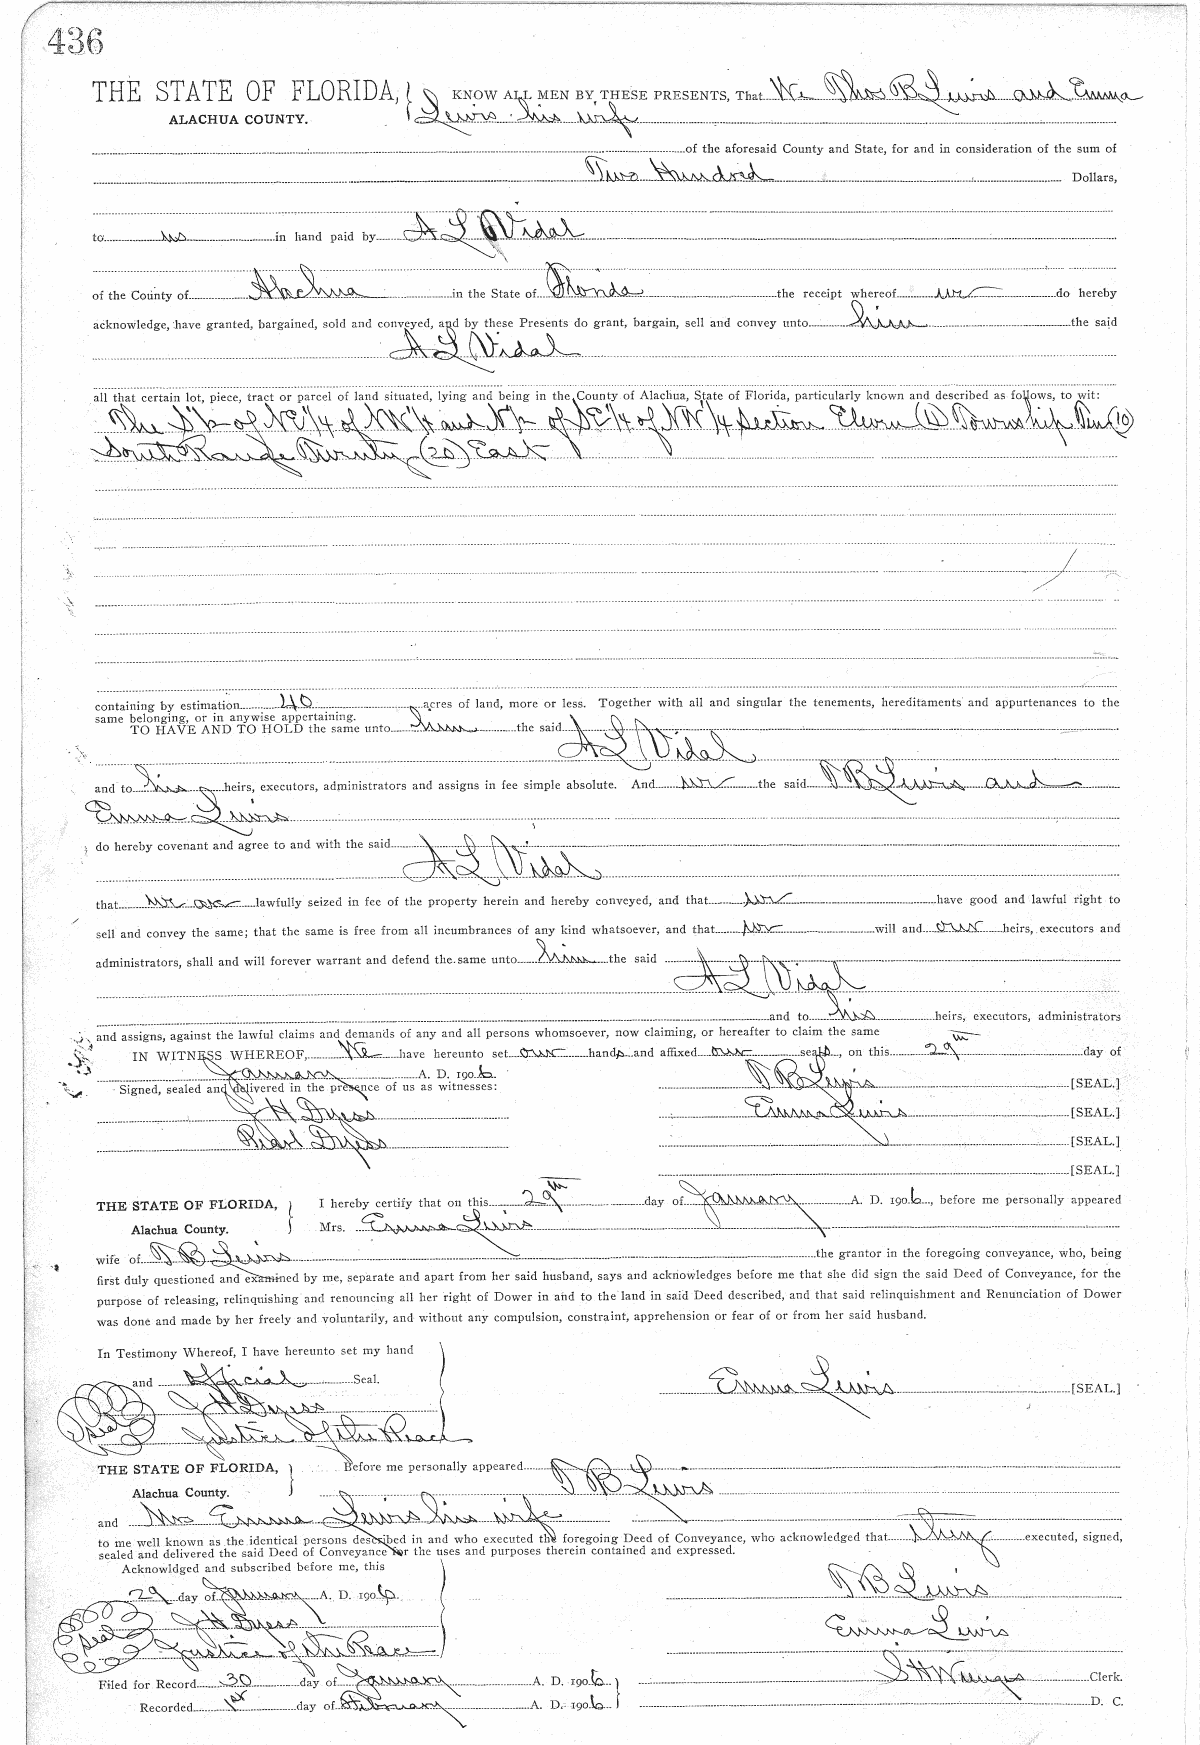 436
THE STATE OF FLORIDA, KNOW ALL MEN BY THESE PRESENTS, That We Thos B Lewis and Emma
ALACHUA COUNTY. Lewis his wife
of the aforesaid County and State, for and in consideration of the sum of
Two Hundred Dollars,
to us in hand paid by A L Vidal
of the County of Alachua in the State of Florida the receipt whereof we do hereby
acknowledge, have granted, bargained, sold and conveyed, and by these Presents do grant, bargain, sell and convey unto him the said
A L Vidal
all that certain lot, piece, tract or parcel of land situated, lying and being in the County of Alachua, State of Florida, particularly known and described as follows, to wit:
The S½ of NE¼ of NW¼ and N½ of SE¼ of NW¼ Section Eleven (11) Township Ten (10)
South Range Twenty (20) East
containing by estimation 40 acres of land, more or less. Together with all and singular the tenements, hereditaments and appurtenances to the
same belonging, or in anywise appertaining.
TO HAVE AND TO HOLD the same unto him the said
A L Vidal
and to his heirs, executors, administrators and assigns in fee simple absolute. And we the said T B Lewis and
Emma Lewis
do hereby covenant and agree to and with the said
A L Vidal
that we are lawfully seized in fee of the property herein and hereby conveyed, and that we have good and lawful right to
sell and convey the same; that the same is free from all incumbrances of any kind whatsoever, and that we will and our heirs, executors and
administrators, shall and will forever warrant and defend the same unto him the said
A L Vidal
and to his heirs, executors, administrators
and assigns, against the lawful claims and demands of any and all persons whomsoever, now claiming, or hereafter to claim the same
IN WITNESS WHEREOF, We have hereunto set our hands and affixed our seals, on this 29th day of
January A. D. 1906
Signed, sealed and delivered in the presence of us as witnesses: T B Lewis [SEAL.]
J H Dyess Emma Lewis [SEAL.]
Pearl Dyess [SEAL.]
[SEAL.]
THE STATE OF FLORIDA, I hereby certify that on this 29th day of January A. D. 1906, before me personally appeared
Alachua County. Mrs. Emma Lewis
wife of T B Lewis the grantor in the foregoing conveyance, who, being
first duly questioned and examined by me, separate and apart from her said husband, says and acknowledges before me that she did sign the said Deed of Conveyance, for the
purpose of releasing, relinquishing and renouncing all her right of Dower in and to the land in said Deed described, and that said relinquishment and Renunciation of Dower
was done and made by her freely and voluntarily, and without any compulsion, constraint, apprehension or fear of or from her said husband.
In Testimony Whereof, I have hereunto set my hand
and official Seal. Emma Lewis [SEAL.]
J H Dyess
Seal Justice of the Peace
THE STATE OF FLORIDA, Before me personally appeared T B Lewis
Alachua County.
and Mrs Emma Lewis his wife
to me well known as the identical persons described in and who executed the foregoing Deed of Conveyance, who acknowledged that they executed, signed,
sealed and delivered the said Deed of Conveyance for the uses and purposes therein contained and expressed.
Acknowldged and subscribed before me, this
29 day of January A. D. 1906 T B Lewis
J H Dyess Emma Lewis
Seal Justice of the Peace
Filed for Record 30 day of January A. D. 1906 S H Wienges Clerk.
Recorded 1st day of February A. D. 1906 D. C.